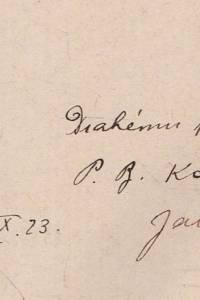 Drahému
P. B. Ko
X. 23.
Ja